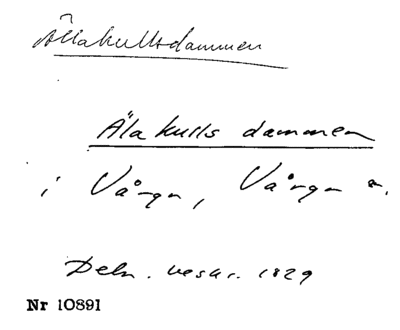 Ällakullsdammen
Älakulls dammen
i Vånga, Vånga s.
Deln. beskr. 1829
Nr 10891